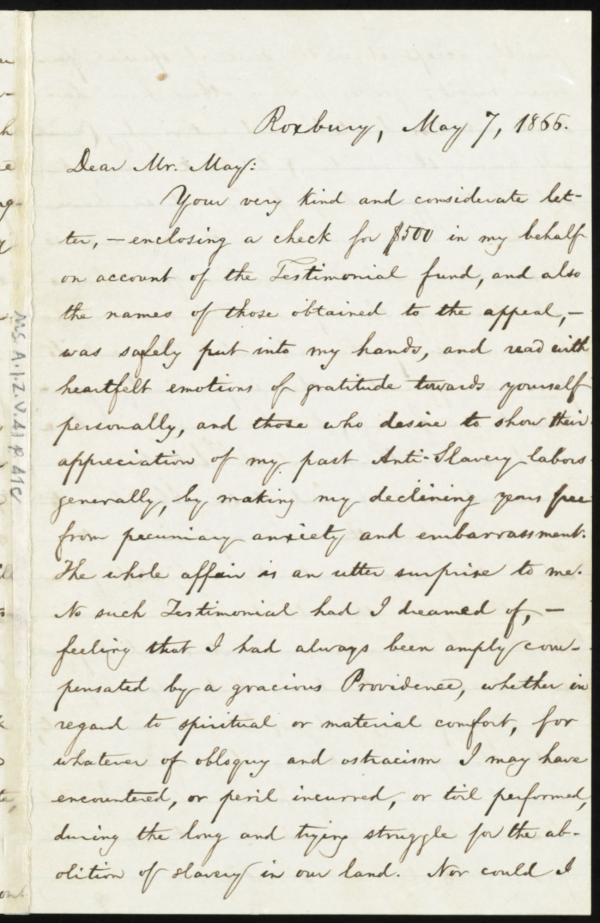 Roxbury, May 7, 1866.
Dear Mr. May:
Your very kind and considerate let-
ter, — enclosing a check for $500 in my behalf
on account of the Testimonial fund, and also
the names of those obtained to the appeal, —
was safely put into my hands, and read with
heartfelt emotions of gratitude towards yourself
personally, and those who desire to show their
appreciation of my past Anti-Slavery labors
generally, by making my declining years free
from pecuniary anxiety and embarrassment.
The whole affair is an utter surprise to me.
No such Testimonial had I dreamed of, —
feeling that I had always been amply com-
pensated by a gracious Providence, whether in
regard to spiritual or material comfort, for
whatever of obloquy and ostracism I may have
encountered, or peril incurred, or toil performed,
during the long and trying struggle for the ab-
olition of slavery in our land. Nor could I
MS. A.1.2.V.41 p 41C